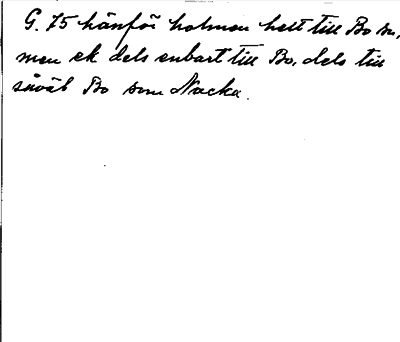 G. 75 hänför holmen helt till Bo sn,
men ek dels enbart till Bo, dels till
såväl Bo som Nacka.